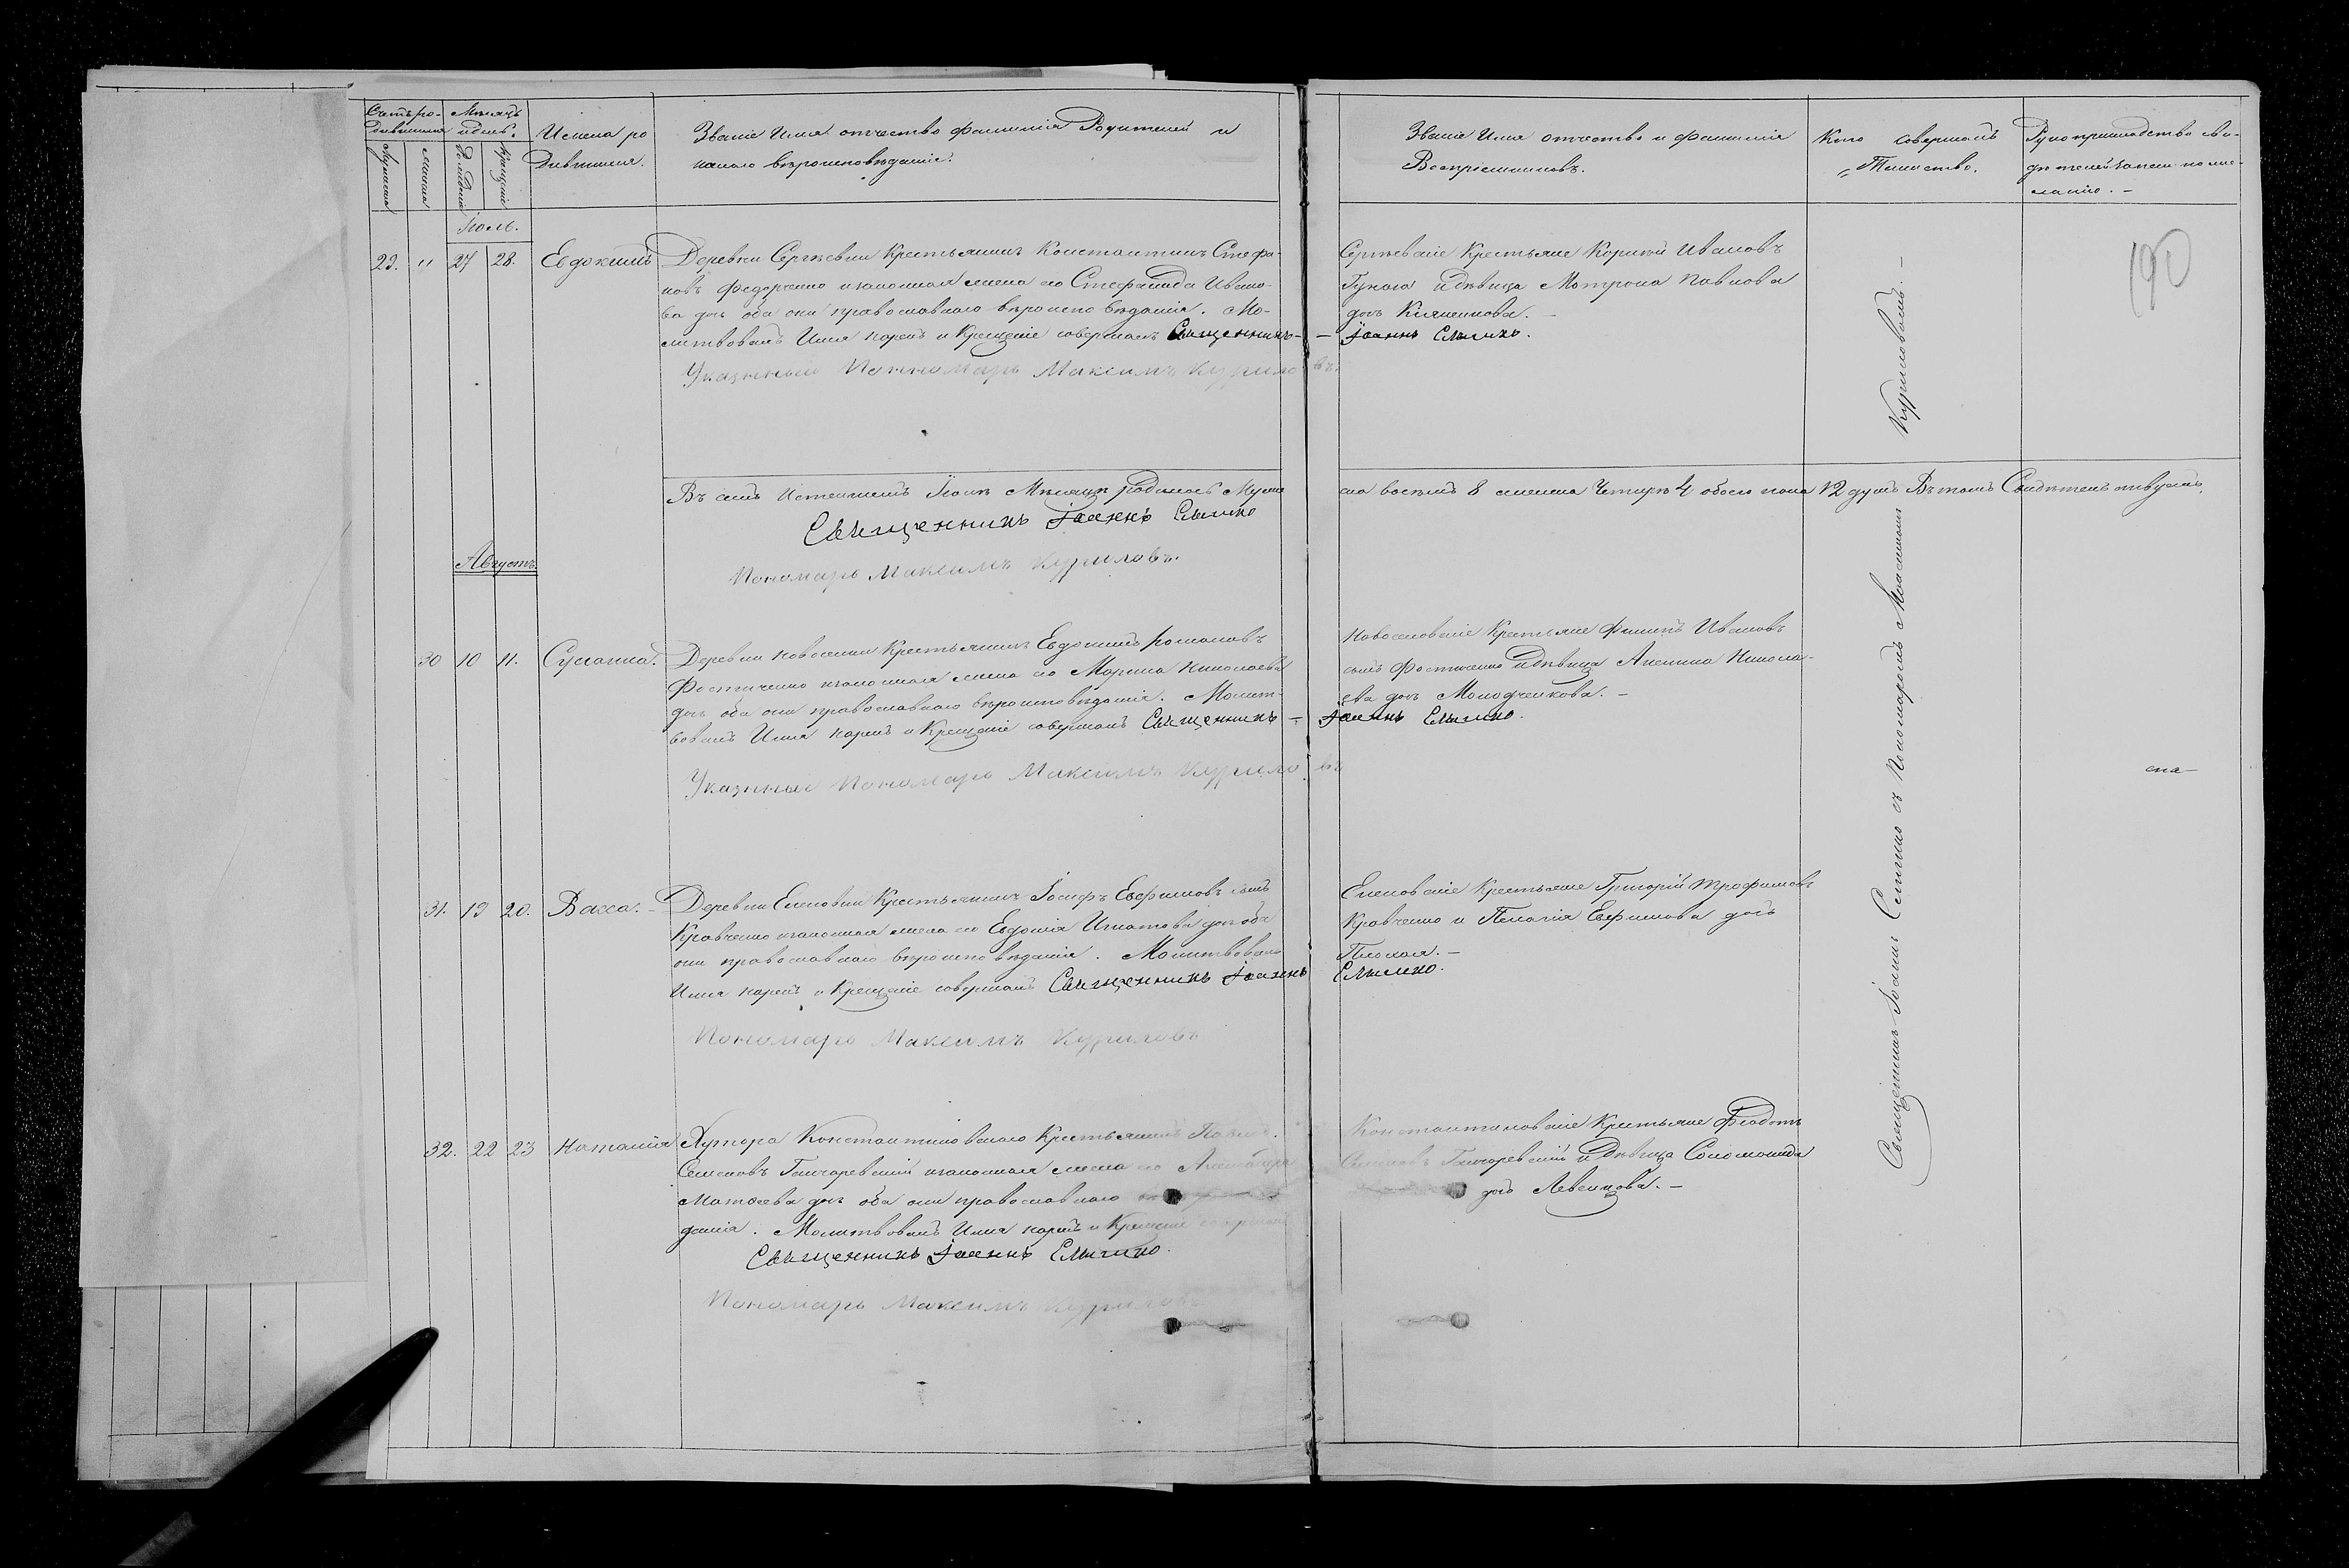 Счетъ ро-
дившихся
Мѣсяцъ
и день.
Мужеска
Женска
Рожденія
Крещенія
Имена ро
дившихся.
Званіе Имя отчество фамилія Родителей и
какого вѣроисповѣданія.
Званіе Имя отчество и фамилія
Воспріемниковъ.
Кто совершалъ
Таинство.
Рукоприкладство сви-
дѣтелей записи по же-
ланію. –
Іюль.
29. " 27 28. Евдокимъ
Деревни Сергѣевки Крестьянинъ Константинъ Стефа-
новъ Федорченко и законная жена его Стефанида Ивано-
ва дочь оба они православнаго вѣроисповѣданія. Мо-
литвовалъ Имя нарекъ и Крещеніе совершалъ Священникъ –
Указнный Пономарь Максимъ Курило въ.
Сергѣевскіе Крестьяне Корнѣй Ивановъ
и дѣвица Мотрона Павлова
дочь –
– Іоаннъ
190
Въ семъ Истекшемъ Іюлѣ Мѣсяцѣ родилось Муже
ска восемь 8 женска Четыре 4 обоего пола 12 душъ Въ томъ Свидѣтельствуемъ.
Священникъ Іоаннъ
Пономарь Максимъ Куриловъ.
Августъ
30 10 11. Сусанна.
Деревни Новоселки Крестьянинъ Евдокимъ Романовъ
Фостиченко и законная жена его Марина Николаева
дочь оба они православнаго вѣроисповѣданія. Молит-
вовалъ Имя нарекъ и Крещеніе совершалъ Священникъ –
Указнный Пономарь Максимъ Курило въ
Новоселовскіе Крестьяне Филипъ Ивановъ
сынъ Фостиченко и дѣвица Аксинья Никола-
ева дочь Молодченкова. –
Іоаннъ
31. 19 20. Васса. –
Деревни Еленовки Крестьянинъ Іосифъ Евфимовъ сынъ
Кравченко и законная жена его Евдокія Игнатова дочь оба
они православнаго вѣроисповѣданія. Молитвовалъ
Имя нарекъ и Крещеніе совершалъ Священникъ Іоаннъ
Пономарь Максимъ Куриловъ
Еленовскіе Крестьяне Григорій Трофимовъ
Кравченко и Пелагія Евфимова дочь
32. 22 23 Наталія
Хутора Константиновскаго Крестьянинъ Павелъ
Семеновъ Гончаревскій и законная жена его
Матвѣева дочь оба они православнаго
данія. Молитвовалъ Имя нарекъ и Крещеніе совершалъ
Священникъ Іоаннъ
Пономарь Максимъ Куриловъ
Константиновскіе Крестьяне Феодотъ
Гончаревскій и Дѣвица Соломонида
дочь –
Священникъ Іоаннъ съ Пономаремъ Максимомъ
Куриловымъ. –